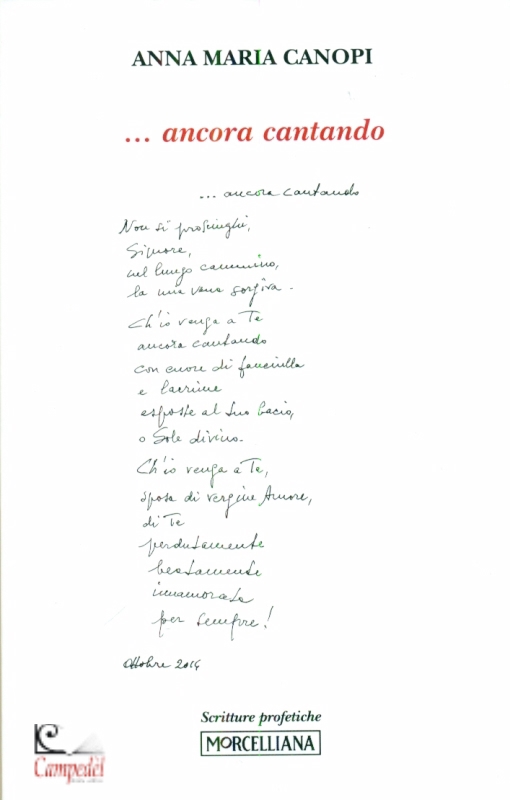 ANNA MARIA CANOPI
... ancora cantando
... ancora cantando
Non si prosciughi,
Signore,
nel lungo cammino,
la mia vena sorgiva.
Ch'io venga a Te
ancora cantando
con cuore di fanciulla
e lacrime
esposte al tuo bacio,
o Sole divino.
Ch'io venga a Te,
sposa di vergine Amore,
di Te
perdutamente
beatamente
innamorata
per sempre!
Ottobre 2014
Scritture profetiche
MORCELLIANA
Campedèl